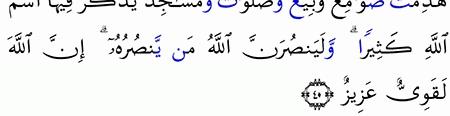 هُدِّمَت صَوَٰمِعُ وَبِيَعٌ وَصَلَوَٰتٌ وَمَسَٰجِدُ يُذْكَرُ فِيهَا اسْمُ
اللَّهِ كَثِيرًا ۗ وَلَيَنصُرَنَّ اللَّهُ مَن يَّنصُرُهُۥٓ ۗ إِنَّ اللَّهَ
لَقَوِىٌّ عَزِيزٌ ﴿٤٠﴾